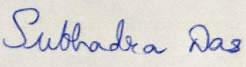 Subhadra Das